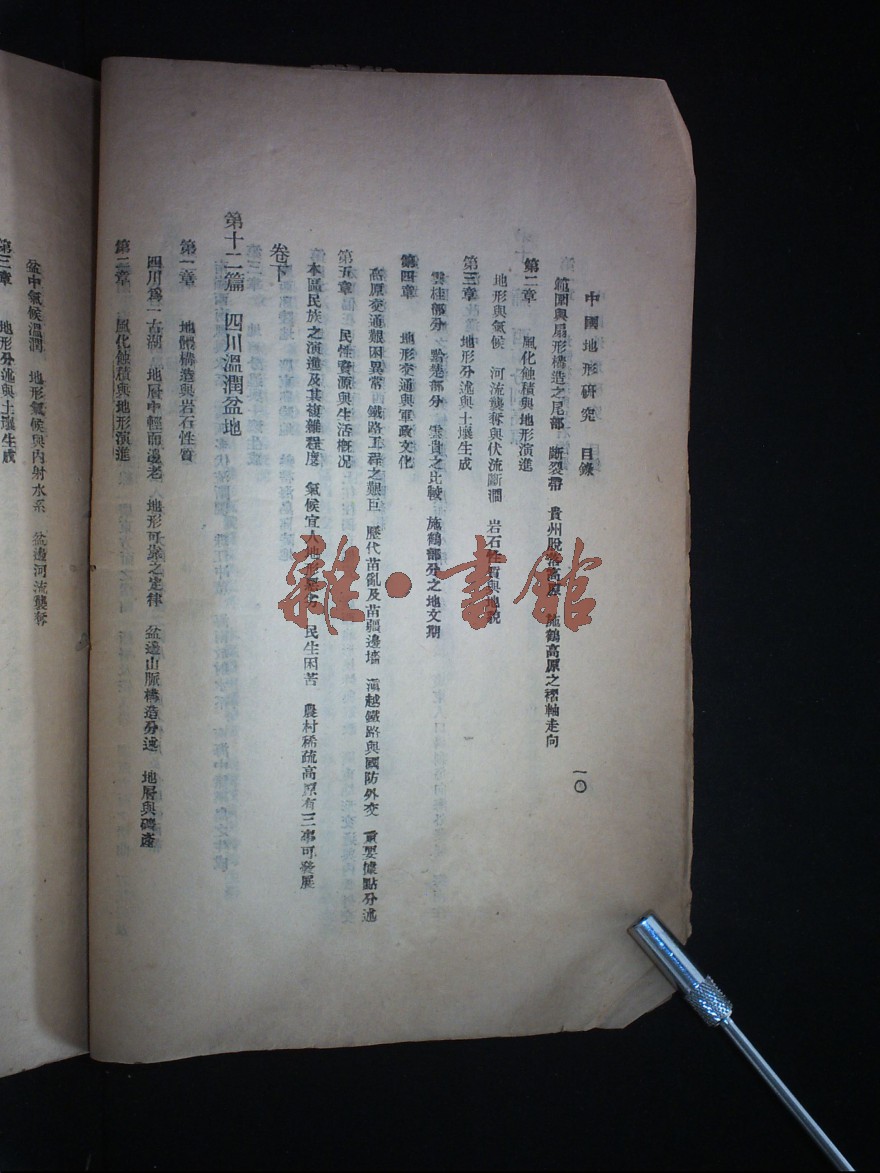 中國地形研究 目錄
一〇
範圍與扇形構造之尾部 斷裂帶 貴州脫落高原 施鶴高原之褶軸走向
第二章 風化蝕積與地形演進
地形與氣候 河流襲奪與伏流斷澗 岩石性質與地貌
第三章 地形分述與土壤生成
雲桂部分 黔楚部分 雲貴之比較 施鶴部分之地文期
第四章 地形交通與軍政文化
高原交通艱困異常 鐵路工程之艱巨 歷代苗亂及苗疆邊墻 滇越鐵路與國防外交 重要據點分述
第五章 民性資源與生活概况
本區民族之演進及其複雜程度 氣候宜人地形 民生困苦 農村稀疏高原有三事可發展
卷下
第十二篇 四川溫潤盆地
第一章 地體構造與岩石性質
四川為一古湖 地層中輕而邊老 地形可靠之定律 盆邊山脈構造分述 地層與礦產
第二章 風化蝕積與地形演進
盆中氣候溫潤 地形氣候與內射水系 盆邊河流襲奪
第三章 地形分述與土壤生成
雜·書館